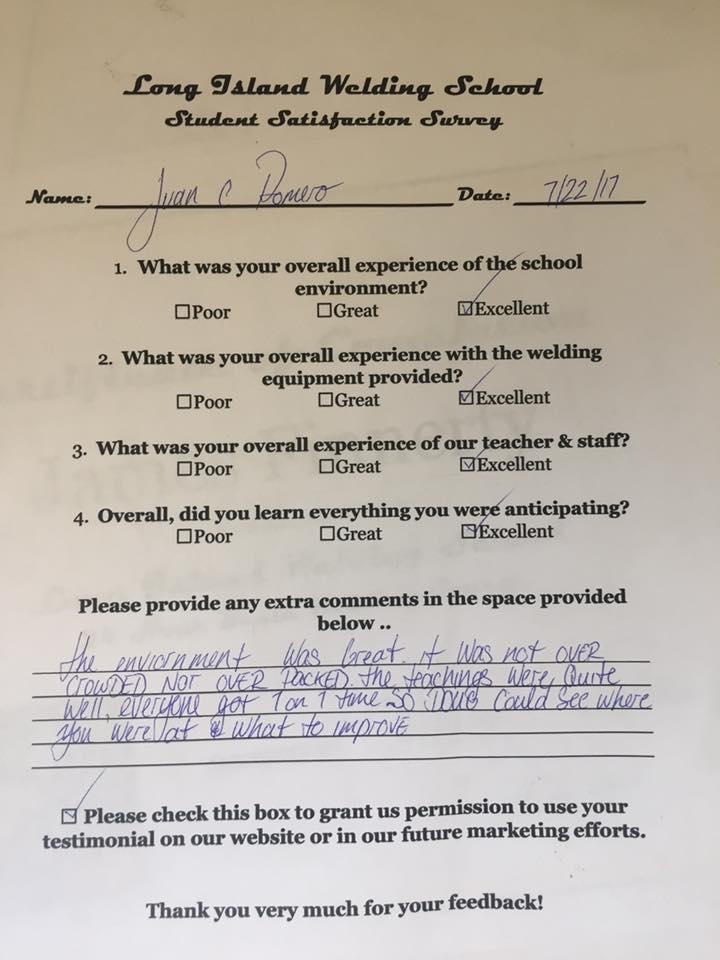 Long Island Welding School
Student Satisfaction Survey
Name: Juan C Romero Date: 7/22/17
1. What was your overall experience of the school
environment?
☐Poor ☐Great ☑Excellent
2. What was your overall experience with the welding
equipment provided?
☐Poor ☐Great ☑Excellent
3. What was your overall experience of our teacher & staff?
☐Poor ☐Great ☑Excellent
4. Overall, did you learn everything you were anticipating?
☐Poor ☐Great ☑Excellent
Please provide any extra comments in the space provided
below ..
the enviornment Was Great. it Was not over
crowded Nor over Packed. the teachings Were Quite
Well, everyone got 1 on 1 time so could See where
you were at & what to improve
☑ Please check this box to grant us permission to use your
testimonial on our website or in our future marketing efforts.
Thank you very much for your feedback!